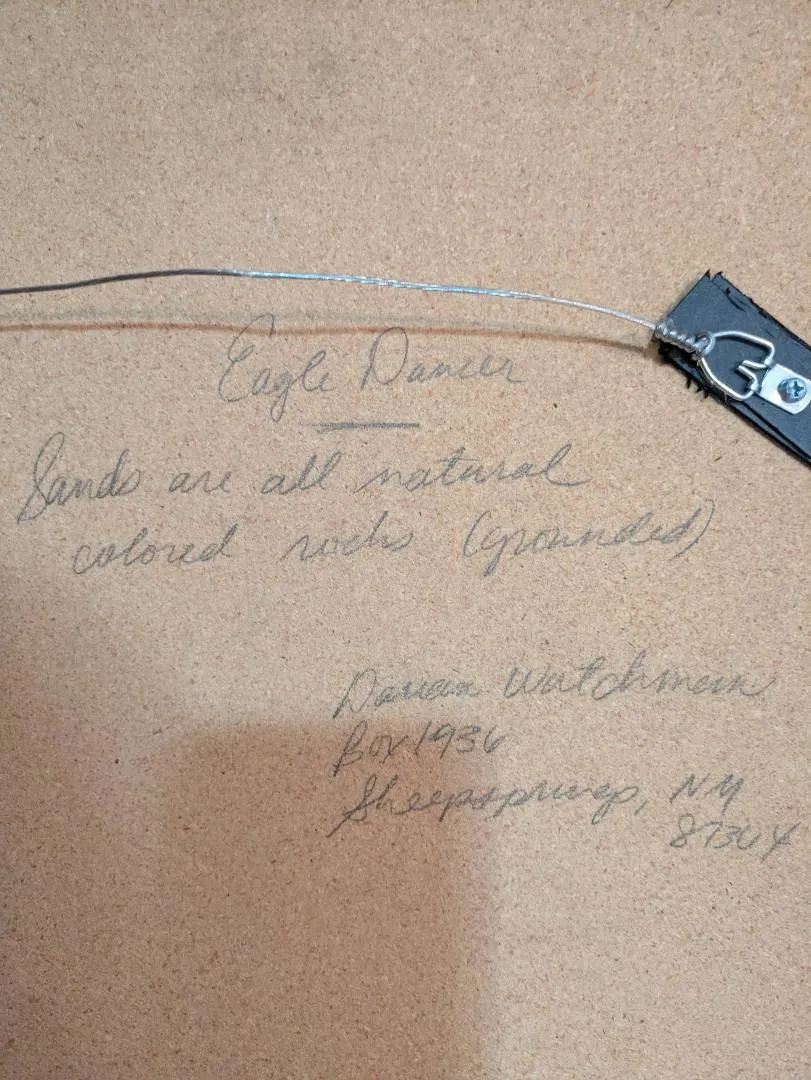 Eagle Dancer
Sands are all natural
colored rocks (grounded)
Watchman
Box 1936
Sheepsprings, NM
87364